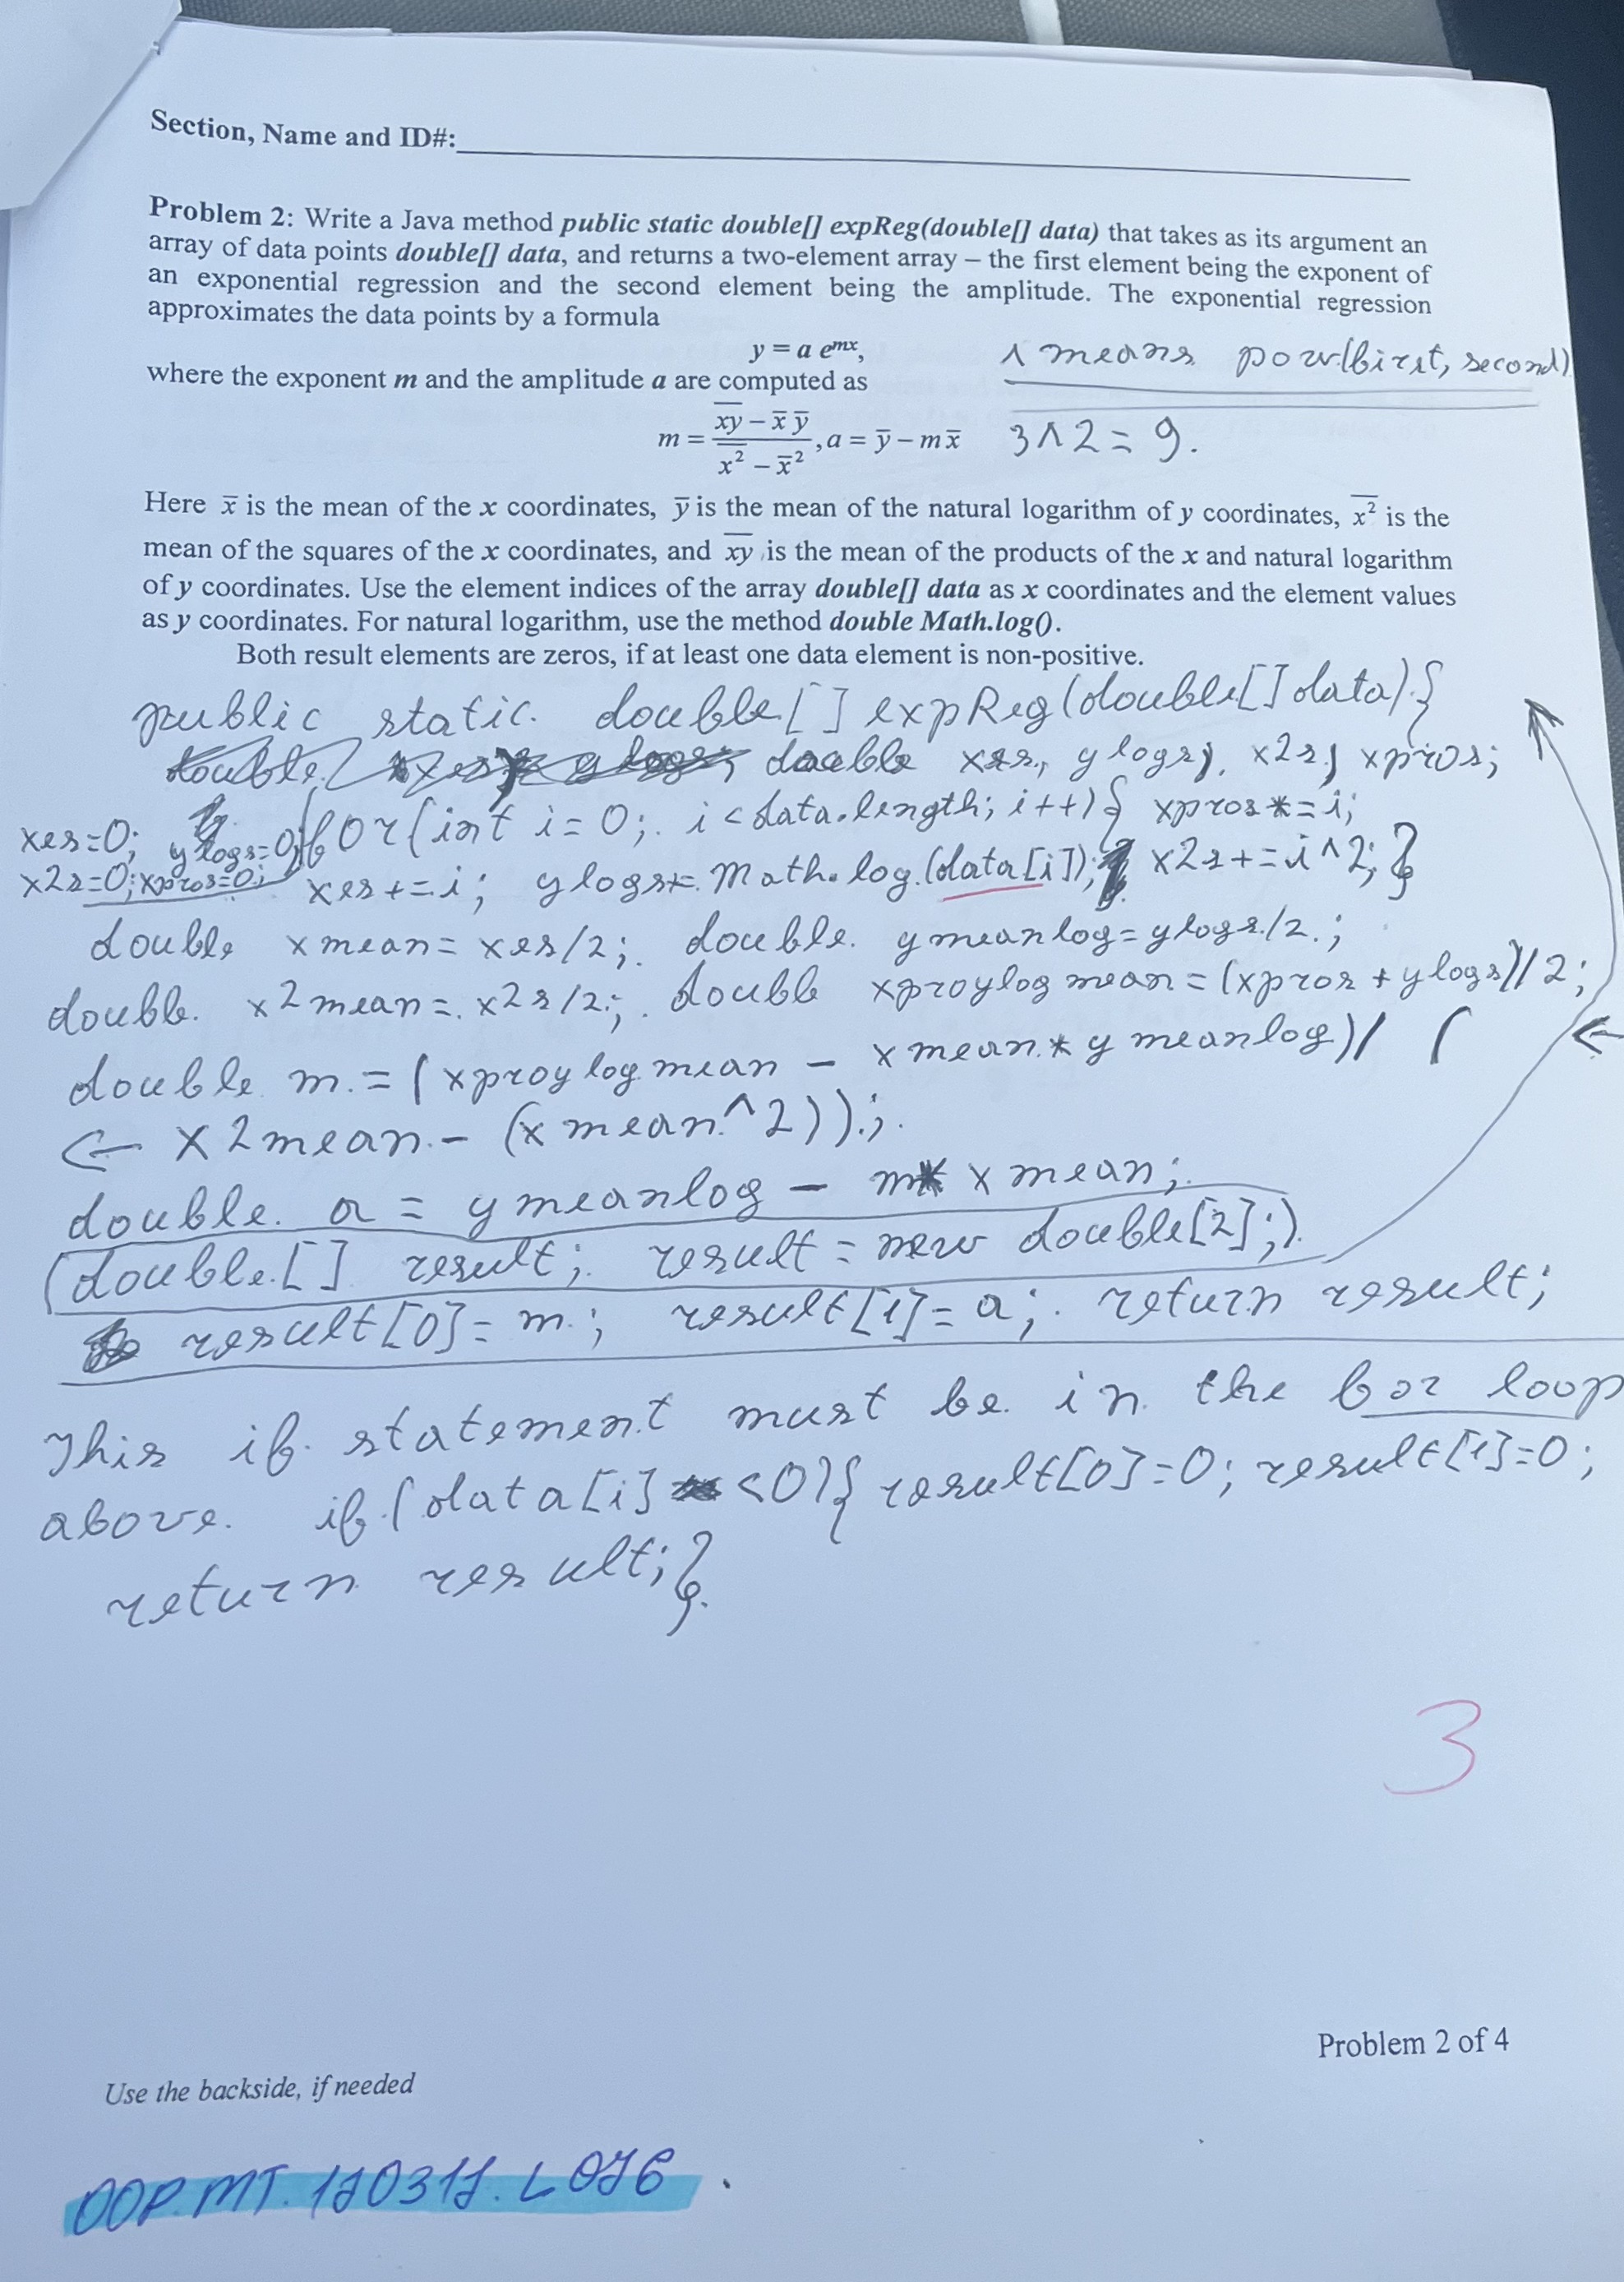 Section, Name and ID#:
Problem 2: Write a Java method public static double[] expReg(double[] data) that takes as its argument an
array of data points double[] data, and returns a two-element array – the first element being the exponent of
an exponential regression and the second element being the amplitude. The exponential regression
approximates the data points by a formula
y = a e^{mx},
^ means pow(first, second)
where the exponent m and the amplitude a are computed as
m = \frac{\overline{xy} - \bar{x} \bar{y}}{\overline{x^2} - \bar{x}^2}, a = \bar{y} - m\bar{x}
3^2 = 9.
Here x̄ is the mean of the x coordinates, ȳ is the mean of the natural logarithm of y coordinates, \overline{x^2} is the
mean of the squares of the x coordinates, and \overline{xy} is the mean of the products of the x and natural logarithm
of y coordinates. Use the element indices of the array double[] data as x coordinates and the element values
as y coordinates. For natural logarithm, use the method double Math.log().
Both result elements are zeros, if at least one data element is non-positive.
public static double[] expReg(double[] data) {
double xes, ylogs, x2s, xpros;
xes=0; ylogs=0; for(int i=0; i<data.length; i++){ xpros*=i;
x2s=0; xpros=0; xes+=i; ylogs+=Math.log(data[i]); x2s+=i^2; }
double xmean = xes/2; double ymeanlog=ylogs/2;
double x2mean = x2s/2; double xproylogmean=(xpros+ylogs)/2;
double m = (xproylogmean - xmean*ymeanlog)/ ( ←
← x2mean - (xmean^2));
double a = ymeanlog - m*xmean;
(double[] result; result = new double[2];)
result[0]=m; result[1]=a; return result;
This if statement must be in the for loop
above. if(data[i] <0){ result[0]=0; result[1]=0;
return result;}
3
Problem 2 of 4
Use the backside, if needed